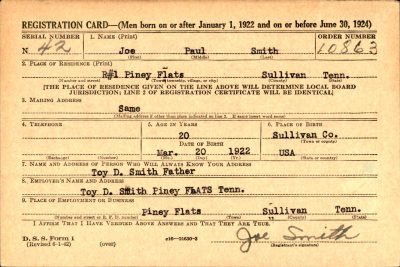 REGISTRATION CARD—(Men born on or after January 1, 1922 and on or before June 30, 1924)
SERIAL NUMBER 1. NAME (Print) ORDER NUMBER
N 42 Joe Paul Smith 10863
(First) (Middle) (Last)
2. PLACE OF RESIDENCE (Print)
R#1 Piney Flats Sullivan Tenn.
(Number and street) (Town, township, village, or city) (County) (State)
[THE PLACE OF RESIDENCE GIVEN ON THE LINE ABOVE WILL DETERMINE LOCAL BOARD
JURISDICTION; LINE 2 OF REGISTRATION CERTIFICATE WILL BE IDENTICAL]
3. MAILING ADDRESS
Same
(Mailing address if other than place indicated on line 2. If same insert word same)
4. TELEPHONE 5. AGE IN YEARS 6. PLACE OF BIRTH
20 Sullivan Co.
DATE OF BIRTH (Town or county)
Mar. 20 1922 USA
(Exchange) (Number) (Mo.) (Day) (Yr.) (State or country)
7. NAME AND ADDRESS OF PERSON WHO WILL ALWAYS KNOW YOUR ADDRESS
Toy D. Smith Father
8. EMPLOYER'S NAME AND ADDRESS
Toy D. Smith Piney FLATS Tenn.
9. PLACE OF EMPLOYMENT OR BUSINESS
Piney Flats Sullivan Tenn.
(Number and street or R. F. D. number) (Town) (County) (State)
I AFFIRM THAT I HAVE VERIFIED ABOVE ANSWERS AND THAT THEY ARE TRUE.
D. S. S. Form 1
(Revised 6-1-42) (over) c16—21630-2 Joe Smith
(Registrant's signature)